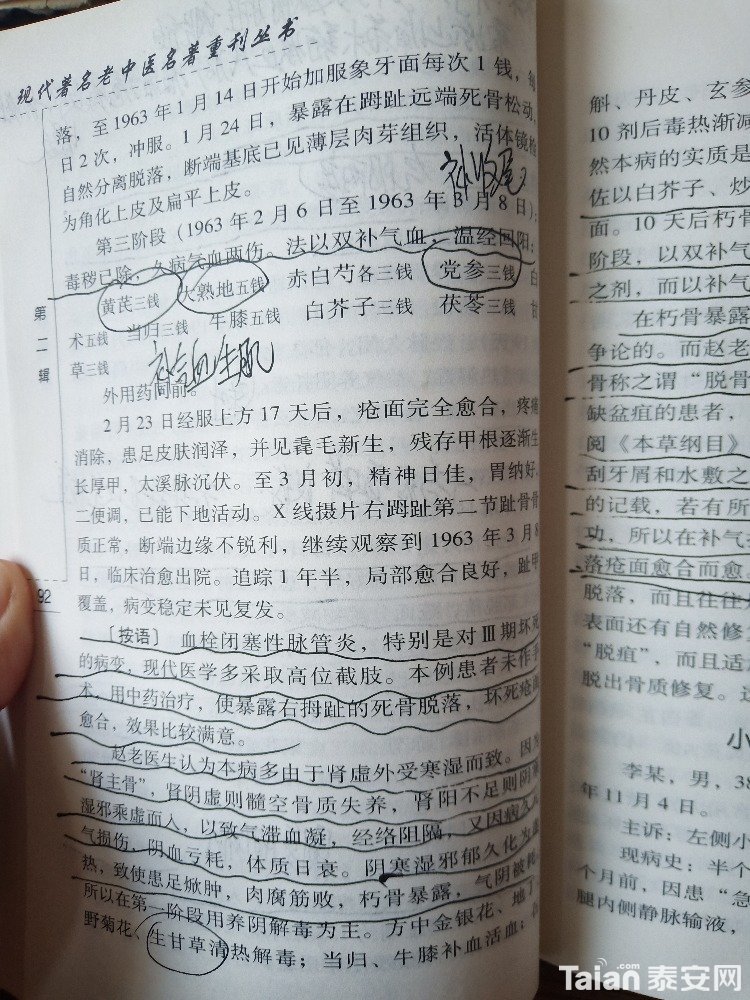 现代著名老中医名著重刊丛书
落，至1963年1月14日开始加服象牙面每次1钱，每
日2次，冲服。1月24日，暴露在踇趾远端死骨松动，
自然分离脱落，断端基底已见薄层肉芽组织，活体镜检
为角化上皮及扁平上皮。
补收尾
第三阶段（1963年2月6日至1963年3月8日）：
毒秽已除，久病气血两伤。法以双补气血，温经回阳：
黄芪三钱 大熟地五钱 赤白芍各三钱 党参三钱 白
术五钱 当归三钱 牛膝五钱 白芥子三钱 茯苓三钱 甘
草三钱
补气血生肌
外用药同前。
2月23日经服上方17天后，疮面完全愈合，疼痛
消除，患足皮肤润泽，并见毳毛新生，残存甲根逐渐生
长厚甲，太溪脉沉伏。至3月初，精神日佳，胃纳好，
二便调，已能下地活动。X线摄片右踇趾第二节趾骨骨
质正常，断端边缘不锐利，继续观察到1963年3月8
日，临床治愈出院。追踪1年半，局部愈合良好，趾甲
覆盖，病变稳定未见复发。
〔按语〕 血栓闭塞性脉管炎，特别是对Ⅲ期坏死
的病变，现代医学多采取高位截肢。本例患者未作手
术，用中药治疗，使暴露右拇趾的死骨脱落，坏死疮面
愈合，效果比较满意。
赵老医生认为本病多由于肾虚外受寒湿而致。因为
“肾主骨”，肾阴虚则髓空骨质失养，肾阳不足则阴寒
湿邪乘虚而入，以致气滞血凝，经络阻隔，又因病久人
气损伤，阴血亏耗，体质日衰。阴寒湿邪郁久化为毒
热，致使患足焮肿，肉腐筋败，朽骨暴露，气阴被耗
所以在第一阶段用养阴解毒为主。方中金银花、地丁
野菊花、生甘草清热解毒；当归、牛膝补血活血；
第二辑
92
斛、丹皮、玄参
10剂后毒热渐减
然本病的实质是
佐以白芥子、炒
面。10天后朽骨
阶段，以双补气
之剂，而以补气
在朽骨暴露
争论的。而赵老
骨称之谓“脱骨
缺盆疽的患者，
阅《本草纲目》
刮牙屑和水敷之
的记载，若有所
功，所以在补气
落疮面愈合而愈
脱落，而且往往
表面还有自然修
“脱疽”，而且适
脱出骨质修复。
小
李某，男，38
年11月4日。
主诉：左侧小
现病史：半个
个月前，因患“急
腿内侧静脉输液，
Taian.com泰安网